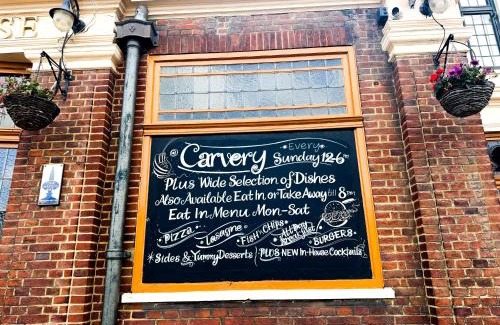 SE
@ Carvery *Every*
Sunday 12-6pm
Plus Wide Selection of Dishes
Also Available Eat In or Take Away till 8pm
Eat In Menu Mon-Sat
Pizza Lasagne Fish n Chips All Day Breakfast BURGERS
*Sides & Yummy Desserts PLUS NEW In-House Cocktails